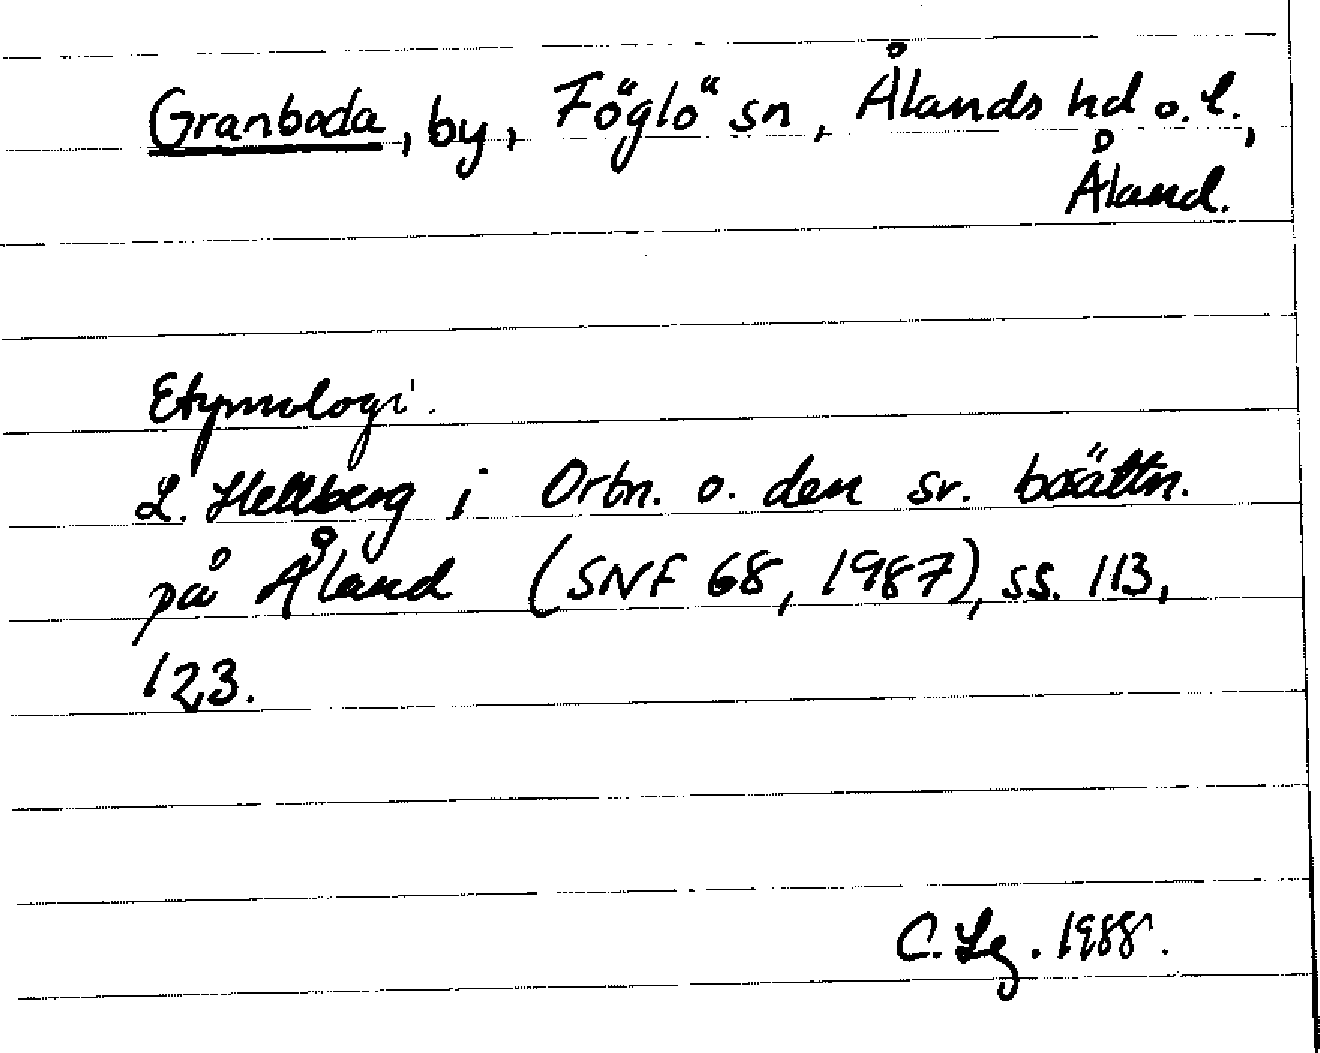 Granboda, by, Föglö sn, Ålands hd o. l.,
Åland.
Etymologi.
L. Hellberg i Ortn. o. den sv. bosättn.
på Åland (SNF 68, 1987), ss. 113,
123.
C. Lg. 1988.